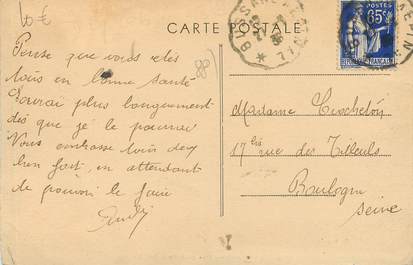 10 €
CARTE POSTALE
BESANCON
POSTES
65c
RÉPUBLIQUE FRANÇAISE
Pense que vous êtes
tous en bonne santé
Ecrirai plus longuement
dès que je le pourrai
Vous embrasse tous deux
bien fort, en attendant
de pouvoir le faire
(88)
Madame Crocheton
17 bis rue des Tilleuls
Boulogne
Seine